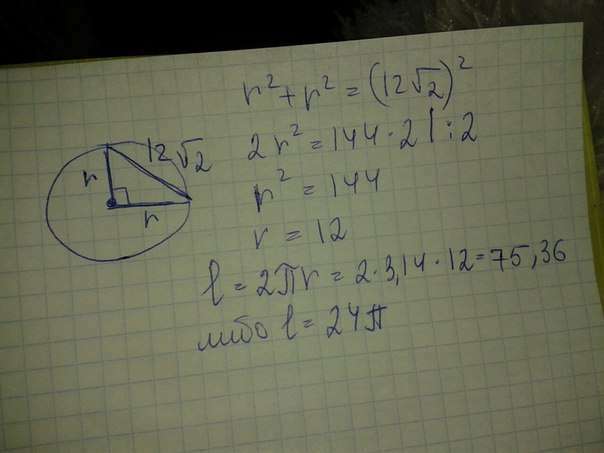 r² + r² = (12√2)²
2r² = 144·2 | :2
r² = 144
r = 12
l = 2πr = 2·3,14·12 = 75,36
либо l = 24π
12√2
r
r